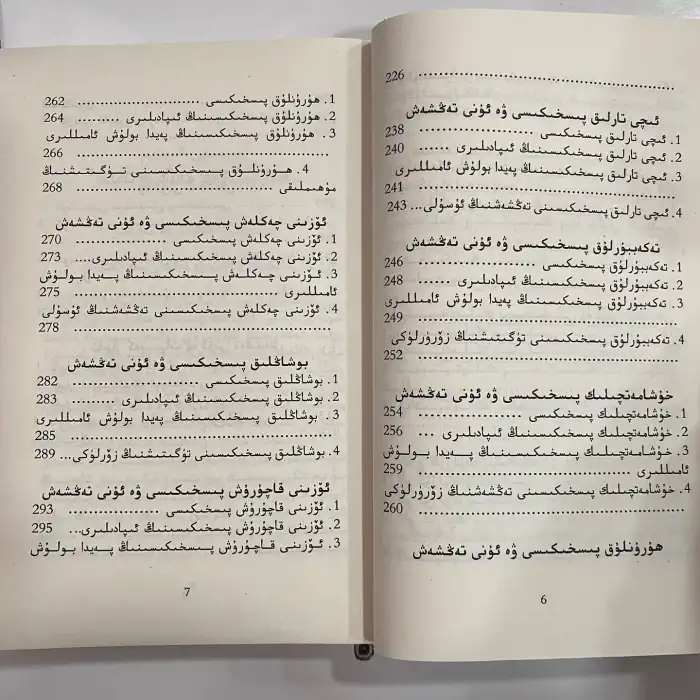 226 ........................................
ئىچى تارلىق پىسخىكىسى ۋە ئۇنى تەڭشەش
1. ئىچى تارلىق پىسخىكىسى .................. 238
2. ئىچى تارلىق پىسخىكىسىنىڭ ئىپادىلىرى ...... 240
3. ئىچى تارلىق پىسخىكىسىنىڭ پەيدا بولۇش ئامىللىرى
241 ........................................
4. ئىچى تارلىق پىسخىكىسىنى تەڭشەشنىڭ ئۇسۇلى... 243
تەكەببۇرلۇق پىسخىكىسى ۋە ئۇنى تەڭشەش
1. تەكەببۇرلۇق پىسخىكىسى .................. 246
2. تەكەببۇرلۇق پىسخىكىسىنىڭ ئىپادىلىرى ...... 248
3. تەكەببۇرلۇق پىسخىكىسىنىڭ پەيدا بولۇش ئامىللىرى
249 ........................................
4. تەكەببۇرلۇق پىسخىكىسىنى تۈگىتىشنىڭ زۆرۈرلۈكى
252 ........................................
خۇشامەتچىلىك پىسخىكىسى ۋە ئۇنى تەڭشەش
1. خۇشامەتچىلىك پىسخىكىسى .................. 254
2. خۇشامەتچىلىك پىسخىكىسىنىڭ ئىپادىلىرى ... 256
3. خۇشامەتچىلىك پىسخىكىسىنىڭ پەيدا بولۇش
ئامىللىرى .................................. 259
4. خۇشامەتچىلىك پىسخىكىسىنى تەڭشەشنىڭ زۆرۈرلۈكى
260 ........................................
ھۇرۇنلۇق پىسخىكىسى ۋە ئۇنى تەڭشەش
6
1. ھۇرۇنلۇق پىسخىكىسى ...................... 262
2. ھۇرۇنلۇق پىسخىكىسىنىڭ ئىپادىلىرى ......... 264
3. ھۇرۇنلۇق پىسخىكىسىنىڭ پەيدا بولۇش ئامىللىرى
266 ........................................
4. ھۇرۇنلۇق پىسخىكىسىنى تۈگىتىشنىڭ
مۇھىملىقى .................................. 268
ئۆزىنى چەكلەش پىسخىكىسى ۋە ئۇنى تەڭشەش
1. ئۆزىنى چەكلەش پىسخىكىسى ................ 270
2. ئۆزىنى چەكلەش پىسخىكىسىنىڭ ئىپادىلىرى.... 273
3. ئۆزىنى چەكلەش پىسخىكىسىنىڭ پەيدا بولۇش
ئامىللىرى .................................. 275
4. ئۆزىنى چەكلەش پىسخىكىسىنى تەڭشەشنىڭ ئۇسۇلى
278 ........................................
بوشاڭلىق پىسخىكىسى ۋە ئۇنى تەڭشەش
1. بوشاڭلىق پىسخىكىسى ...................... 282
2. بوشاڭلىق پىسخىكىسىنىڭ ئىپادىلىرى ......... 283
3. بوشاڭلىق پىسخىكىسىنىڭ پەيدا بولۇش ئامىللىرى
285 ........................................
4. بوشاڭلىق پىسخىكىسىنى تۈگىتىشنىڭ زۆرۈرلۈكى... 289
ئۆزىنى قاچۇرۇش پىسخىكىسى ۋە ئۇنى تەڭشەش
1. ئۆزىنى قاچۇرۇش پىسخىكىسى ............... 293
2. ئۆزىنى قاچۇرۇش پىسخىكىسىنىڭ ئىپادىلىرى... 295
3. ئۆزىنى قاچۇرۇش پىسخىكىسىنىڭ پەيدا بولۇش
7